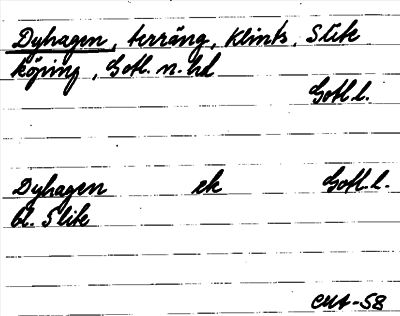 Dyhagen, terräng, Klints, Slite
köping, Gotl. n. hd
Gotl.l.
Dyhagen ek Gotl.l.
bl. Slite